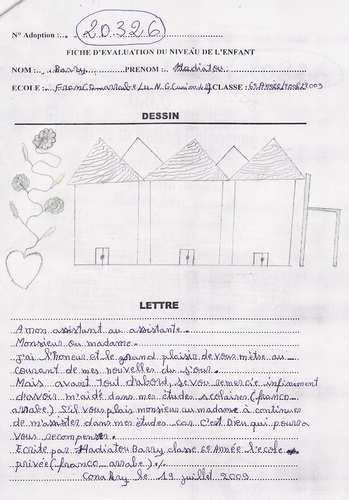 N° Adoption : 20.326
FICHE D'EVALUATION DU NIVEAU DE L'ENFANT
NOM : Barry PRENOM : Hadiatou
ECOLE : Franco arrabe CLASSE : 6e Année
DESSIN
LETTRE
A mon assistant au assistante.
Monsieur ou madame.
J'ai l'honeur et le grand plaisir de vous mètre au
courant de mes nouvelles du jour.
Mais avant tout d'abord, je vous remercie infiniment
davoir m'aidé dans mes études scolaires (franco
arrabe) S'il vous plais monsieur au madame à continues
de m'assister dans mes études car c'est Dieu qui pourra
vous recompenser.
Ecrite par Hadiatou Barry classe 6e Année l'école
privée (franco arrabe)
Conakry le 19 juillet 2009